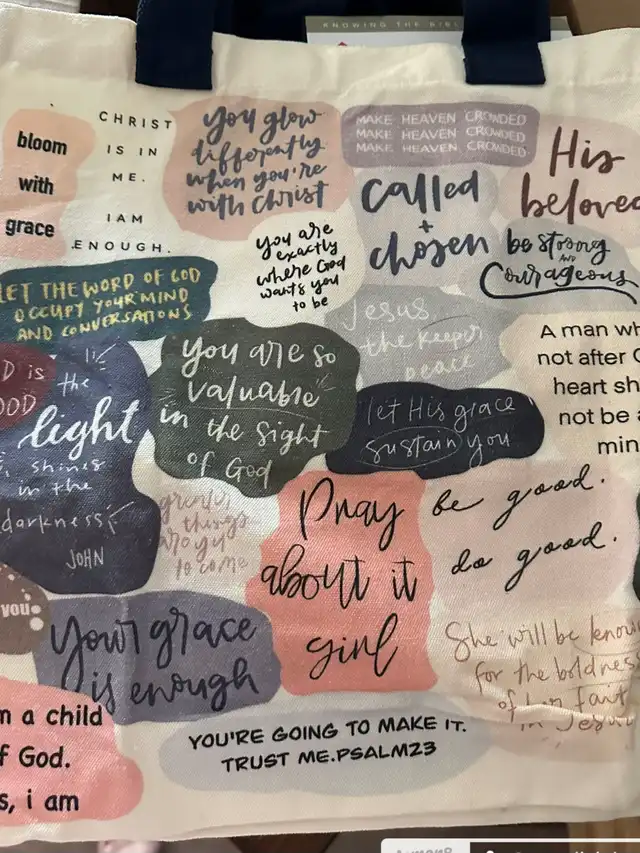 KNOWING THE BIBL
bloom
with
grace
CHRIST
IS IN
ME.
I AM
ENOUGH.
you glow
differently
when you're
with Christ
MAKE HEAVEN CROWDED
MAKE HEAVEN CROWDED
MAKE HEAVEN CROWDED
His
beloved
called
+
chosen
you are
exactly
where God
wants you
to be
be strong
AND
Courageous
LET THE WORD OF GOD
OCCUPY YOUR MIND
AND CONVERSATIONS
Jesus
the keeper
peace
A man wh
not after G
heart sh
not be a
min
D is
OOD
the
light
shines
in the
darkness
JOHN
you are so
valuable
in the sight
of God
let His grace
sustain you
greater
things
are yet
to come
Pray
about it
girl
be good.
do good.
you
your grace
is enough
She will be know
for the boldness
of her fait
in Jesu
m a child
f God.
s, i am
YOU'RE GOING TO MAKE IT.
TRUST ME.PSALM23